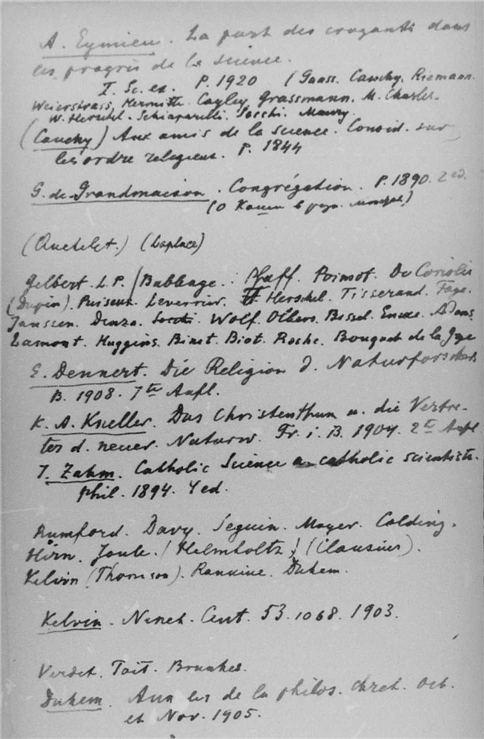 A. Eymieu. La part des croyants dans
les progrès de la science.
I. Sc. ex. P. 1920 (Gauss. Cauchy, Riemann.
Weierstrass, Hermitte. Cayley, Grassmann, M. Charles.
W. Herschel. Schiaparelli. Secchi. Maury.
(Cauchy) Aux amis de la science. Consid. sur
les ordre religieux. P. 1844
G. de Grandmaison. Congrégation. P. 1890. 2 ed.
(О Коши
(Quetelet.) (Laplace)
Gilbert. L.P. (Babbage. Pfaff. Poinsot. De Coriolis
(Dupin). Puiseux. Leverrier. Herschel. Tisserand. Faye.
Janssen. Denza. Secchi. Wolf. Olbers. Bessel. Encke. Adams
Lamont. Huggins. Binet. Biot. Roche. Bouquet de la Grye
E. Dennert. Die Religion d. Naturforscher
B. 1908. 7te Aufl.
K. A. Kneller. Das Christenthum u. die Vertre-
ter d. neuer. Naturw. Fr. i. B. 1904. 2te Aufl
J. Zahm. Catholic Science a. catholic scientists.
Phil. 1894. 4 ed.
Rumford. Davy. Seguin. Mayer. Colding.
Hirn. Joule. (Helmholtz) (Clausius).
Kelvin (Thomson). Rankine. Duhem.
Kelvin. Ninet. Cent. 53. 1068. 1903.
Verdet. Tait. Brunhes.
Duhem. Annales de la philos. chret. Oct.
et Nov. 1905.